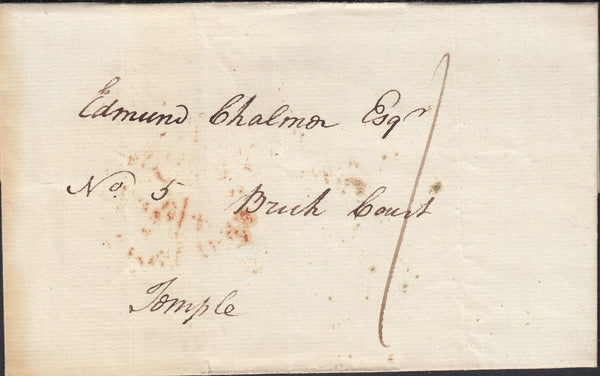 Edmund Chalmer Esqr
No. 5 Brick Court
Temple
1